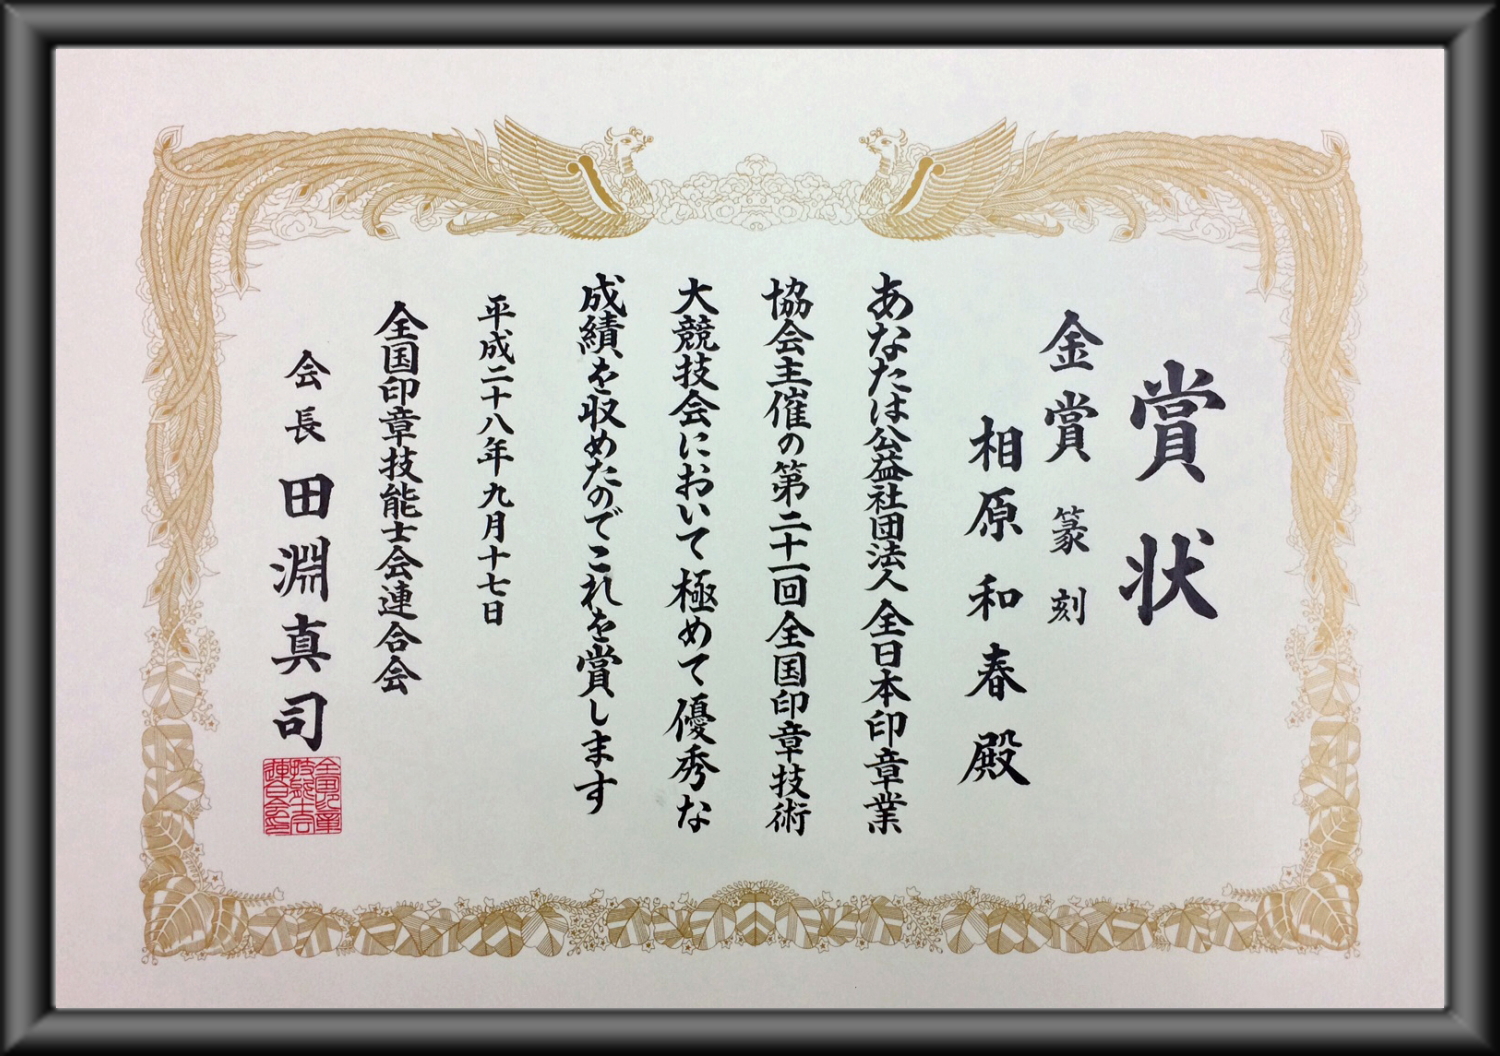 賞状
金賞 篆刻
相原和春殿
あなたは公益社団法人全日本印章業
協会主催の第二十一回全国印章技術
大競技会において極めて優秀な
成績を収めたのでこれを賞します
平成二十八年九月十七日
全国印章技能士会連合会
会長 田淵真司